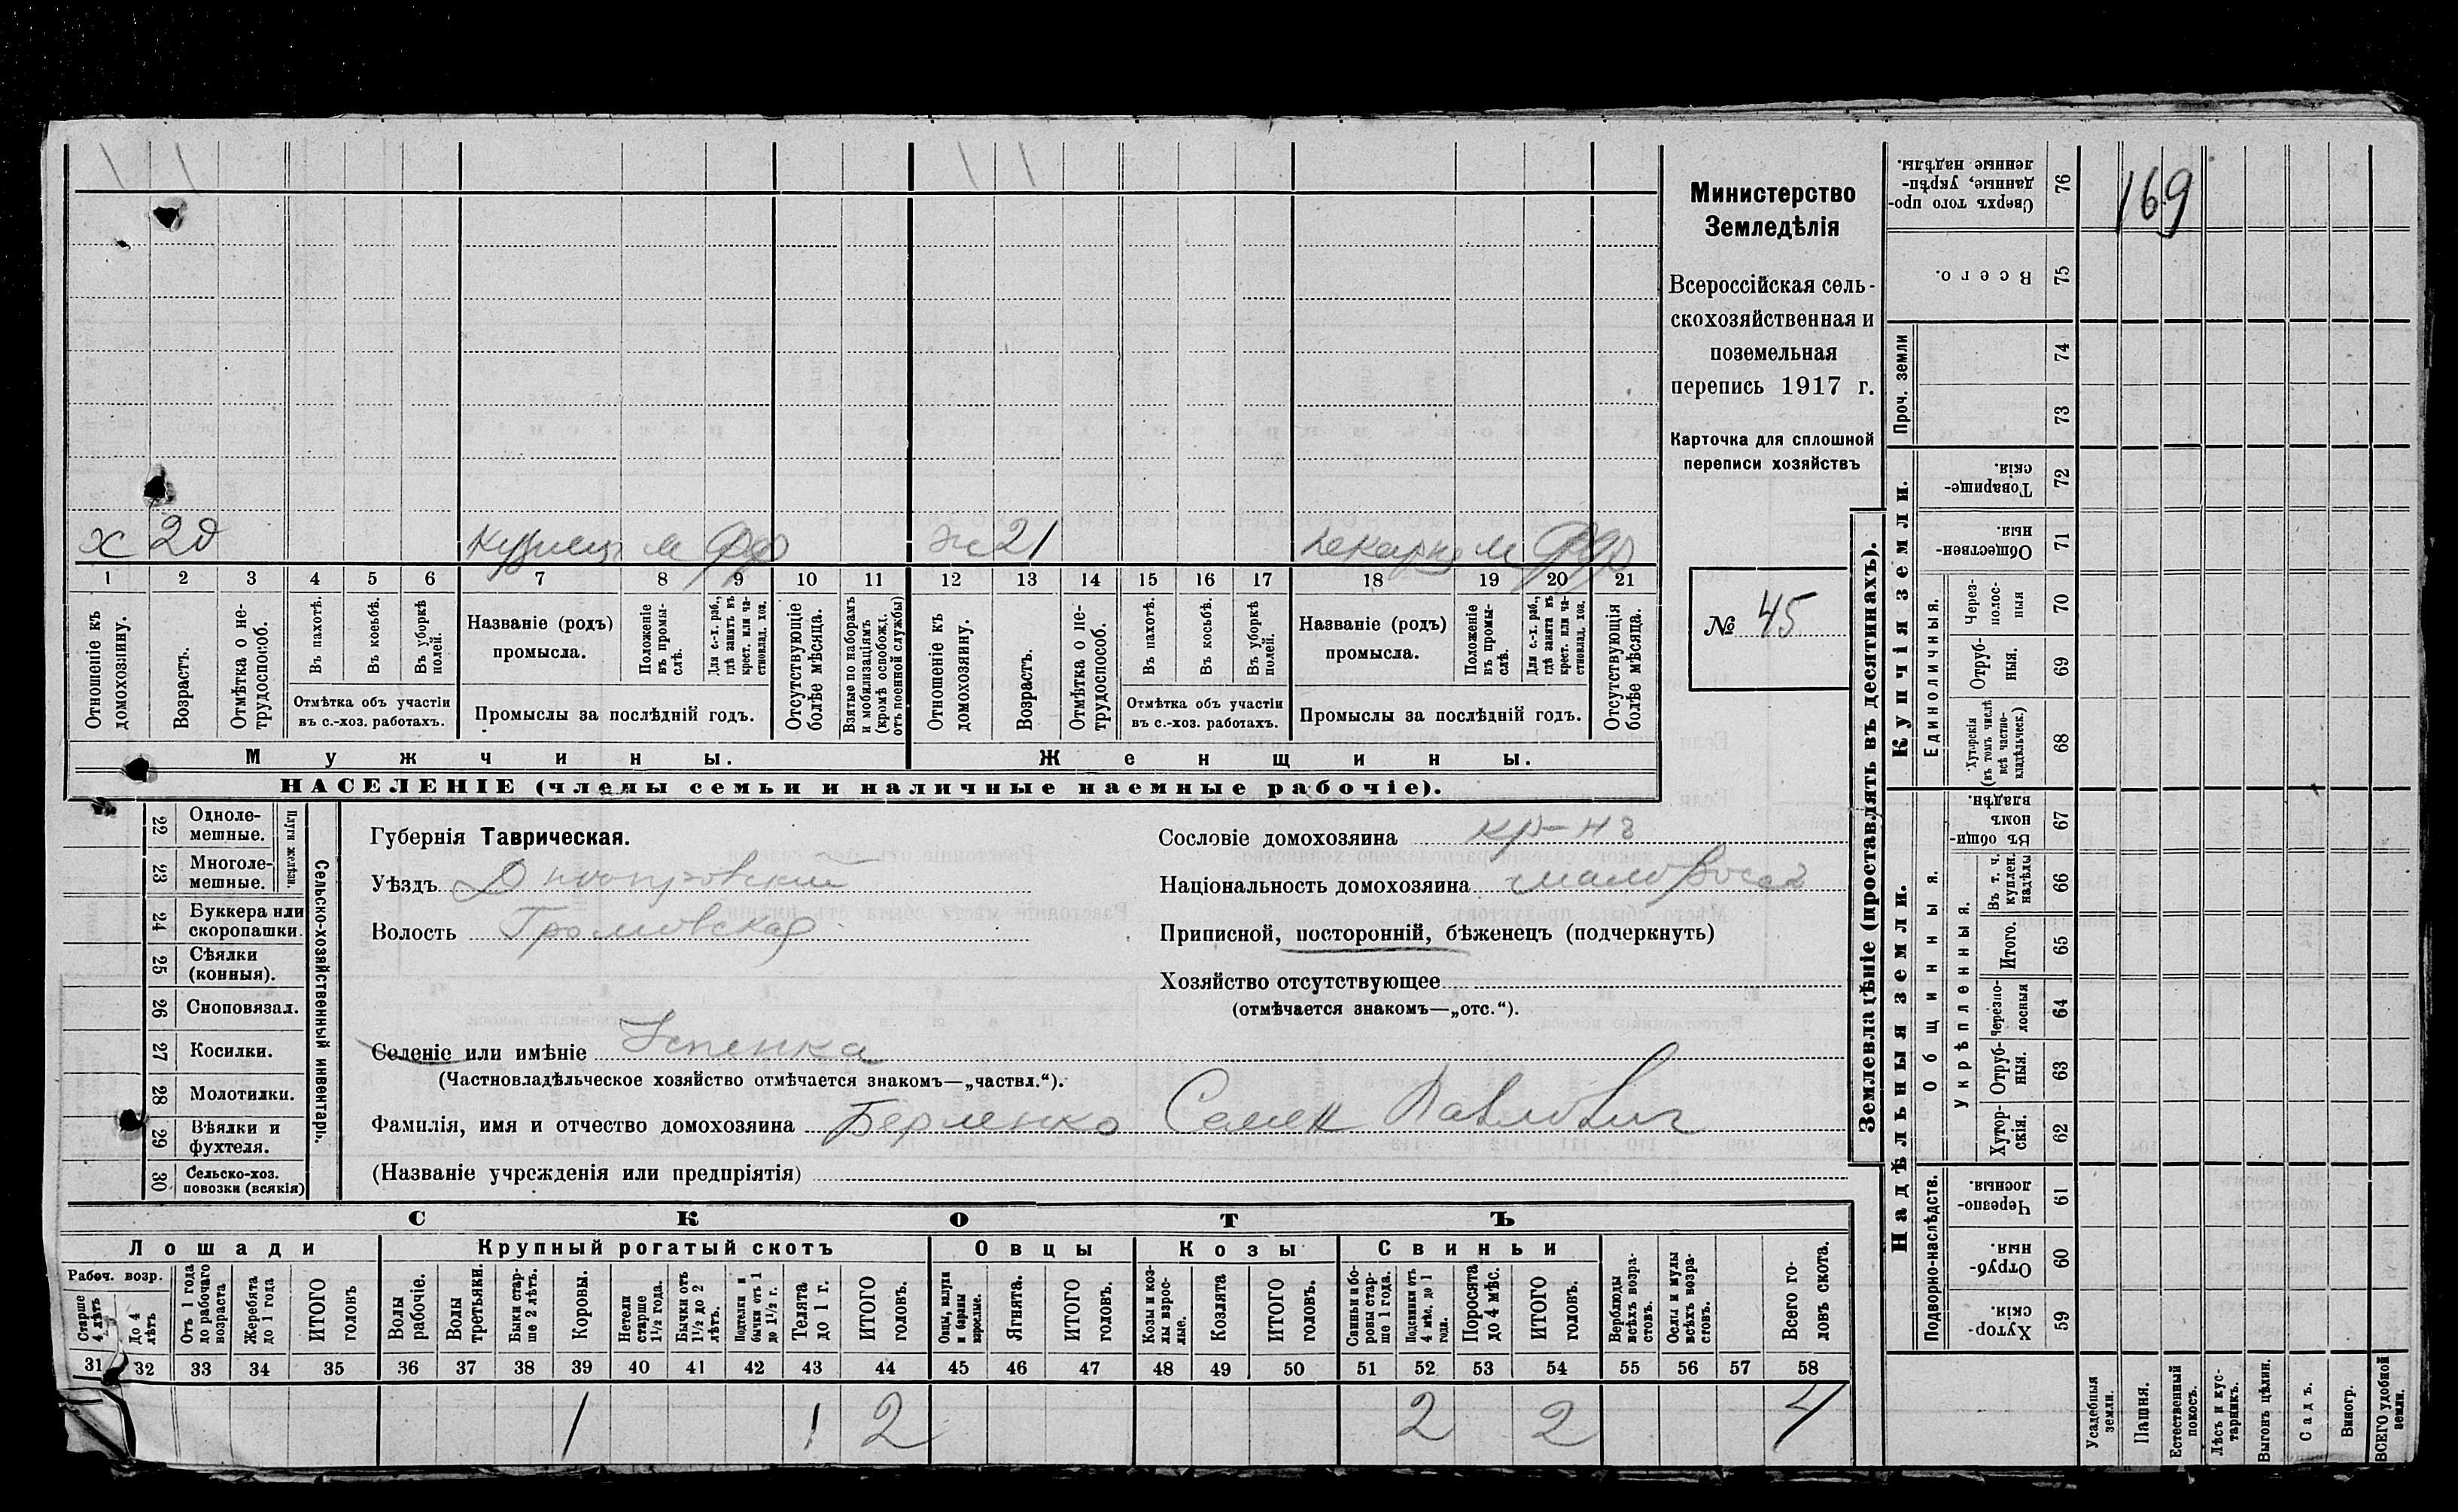 х 20 кузнец м ж 21 м
1 2 3 4 5 6 7 8 9 10 11 12 13 14 15 16 17 18 19 20 21
Отношеніе къ домохозяину.
Возрастъ.
Отмѣтка о не-трудоспособ.
Въ пахотѣ.
Въ косьбѣ.
Въ уборкѣ полей.
Отмѣтка объ участіи
въ с.-хоз. работахъ.
Названіе (родъ)
промысла.
Положеніе въ промы-слѣ.
Для с.-х. раб., гдѣ занятъ въ крест. или ча-стновлад. хоз.
Промыслы за послѣдній годъ.
Отсутствующіе болѣе мѣсяца.
Взятые по наборамъ и мобилизаціямъ (кромѣ освобожд. отъ военной службы)
Отношеніе къ домохозяину.
Возрастъ.
Отмѣтка о не-трудоспособ.
Въ пахотѣ.
Въ косьбѣ.
Въ уборкѣ полей.
Отмѣтка объ участіи
въ с.-хоз. работахъ.
Названіе (родъ)
промысла.
Положеніе въ промы-слѣ.
Для с.-х. раб., гдѣ занята въ крест. или ча-стновлад. хоз.
Промыслы за послѣдній годъ.
Отсутствующія болѣе мѣсяца.
Мужчины. Женщины.
НАСЕЛЕНІЕ (члены семьи и наличные наемные рабочіе).
Министерство
Земледѣлія
Всероссійская сель-
скохозяйственная и
поземельная
перепись 1917 г.
Карточка для сплошной
переписи хозяйствъ
№ 45
22 Одноле-мешные.
23 Многоле-мешные.
Плуги желѣзн.
24 Буккера или скоропашки.
25 Сѣялки (конныя).
26 Сноповязал.
27 Косилки.
28 Молотилки.
29 Вѣялки и фухтеля.
30 Сельско-хоз. повозки (всякія)
Сельско-хозяйственный инвентарь.
Губернія Таврическая.
Уѣздъ Днепровский
Волость Громовская
Сословіе домохозяина кр-нъ
Національность домохозяина малоросс
Приписной, посторонній, бѣженецъ (подчеркнуть)
Хозяйство отсутствующее
(отмѣчается знакомъ—„отс.“).
Селеніе или имѣніе Успенка
(Частновладѣльческое хозяйство отмѣчается знакомъ—„частвл.“).
Фамилія, имя и отчество домохозяина Берленко Семен Павлович
(Названіе учрежденія или предпріятія)
СКОТЪ
Лошади Крупный рогатый скотъ Овцы Козы Свиньи
Рабоч. возр.
Старше 4 лѣтъ
До 4 лѣтъ
Отъ 1 года до рабочаго возраста
Жеребята до 1 года
ИТОГО головъ
Волы рабочіе.
Волы третьяки.
Быки стар-ше 2 лѣтъ.
Коровы.
Нетели старше 1½ года.
Бычки отъ 1½ до 2 лѣтъ.
Подтелки и бычки отъ 1 до 1½ г.
Телята до 1 г.
ИТОГО головъ.
Овцы, валухи и бараны взрослые.
Ягнята.
ИТОГО головъ.
Козы и коз-лы взрос-лые.
Козлята
ИТОГО головъ.
Свиньи и бо-ровы стар-ше 1 года.
Подсвинки отъ 4 мѣс. до 1 года.
Поросята до 4 мѣс.
ИТОГО головъ.
Верблюды всѣхъ возра-стовъ.
Ослы и мулы всѣхъ возра-стовъ.
Всего го-ловъ скота.
31 32 33 34 35 36 37 38 39 40 41 42 43 44 45 46 47 48 49 50 51 52 53 54 55 56 57 58
1 1 2 2 2 4
Землевладѣніе (проставлять въ десятинахъ).
Купчія земли.
Надѣльныя земли.
Сверхъ того про-данные, укрѣп-ленные надѣлы. 76
169
Всего. 75
Проч. земли 74 73
Товарище-скія. 72
Обществен-ныя 71
Единоличныя.
Через-полос-ныя 70
Отруб-ныя. 69
Хуторскія (въ томъ числѣ всѣ частно-владѣльческ.) 68
Общинныя.
Въ общин-номъ владѣн. 67
Укрѣпленныя.
Въ т. ч. куплен. надѣлы 66
Итого. 65
Черезпо-лосныя 64
Отруб-ныя. 63
Хутор-скія. 62
Подворно-наслѣдств.
Черезпо-лосныя. 61
Отруб-ныя. 60
Хутор-скія. 59
Усадебныя земли.
Пашня.
Естественный покосъ.
Лѣсъ и кус-тарникъ.
Выгонъ цѣлин.
Садъ.
Виногр.
ВСЕГО удобной земли.